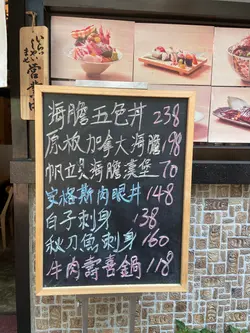 いらっしゃいませ
営業中
海膽五色丼 238
原板加拿大海膽 198
帆立貝海膽漢堡 70
安格斯肉眼丼 148
白子刺身 138
秋刀魚刺身 160
牛肉壽喜鍋 118